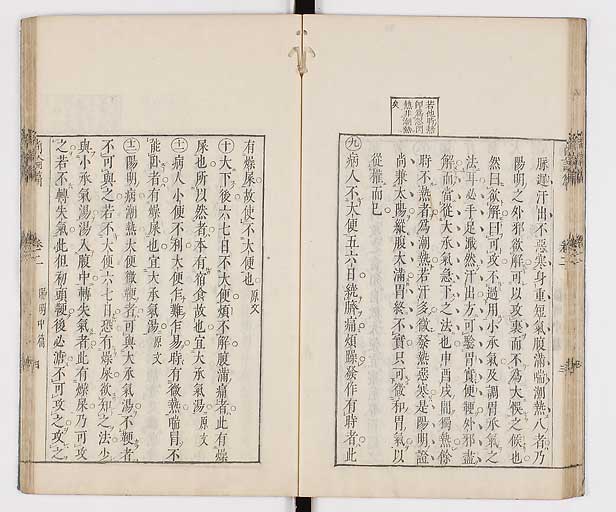 若他時熱
即爲忽閉
熱非潮熱
矣
脉遲汗出不惡寒身重短氣腹滿喘潮熱八者乃
陽明之外邪欲解可以攻裏而不爲大悞之候也
然曰欲解曰可攻不過用小承氣及調胃承氣之
法耳必手足濈然汗出方可驗胃實便鞕外邪盡
解而當從大承氣急下之法也申酉戌間獨熱餘
時不熱者爲潮熱若汗多微發熱惡寒是陽明證
尚兼太陽縱腹大滿胃終不實只可微和胃氣以
從權而已
九 病人不大便五六日繞臍痛煩躁發作有時者此
有燥屎故使不大便也 原文
十 大下後六七日不大便煩不解腹滿痛者此有燥
屎也所以然者本有宿食故也宜大承氣湯 原文
十一 病人小便不利大便乍難乍易時有微熱喘冒不
能臥者有燥屎也宜大承氣湯 原文
十二 陽明病潮熱大便微鞕者可與大承氣湯不鞕者
不可與之若不大便六七日恐有燥屎欲知之法少
與小承氣湯湯入腹中轉失氣者此有燥屎乃可攻
之若不轉失氣此但初頭鞕後必溏不可攻之攻之
尚論篇
卷二
陽明中篇
四